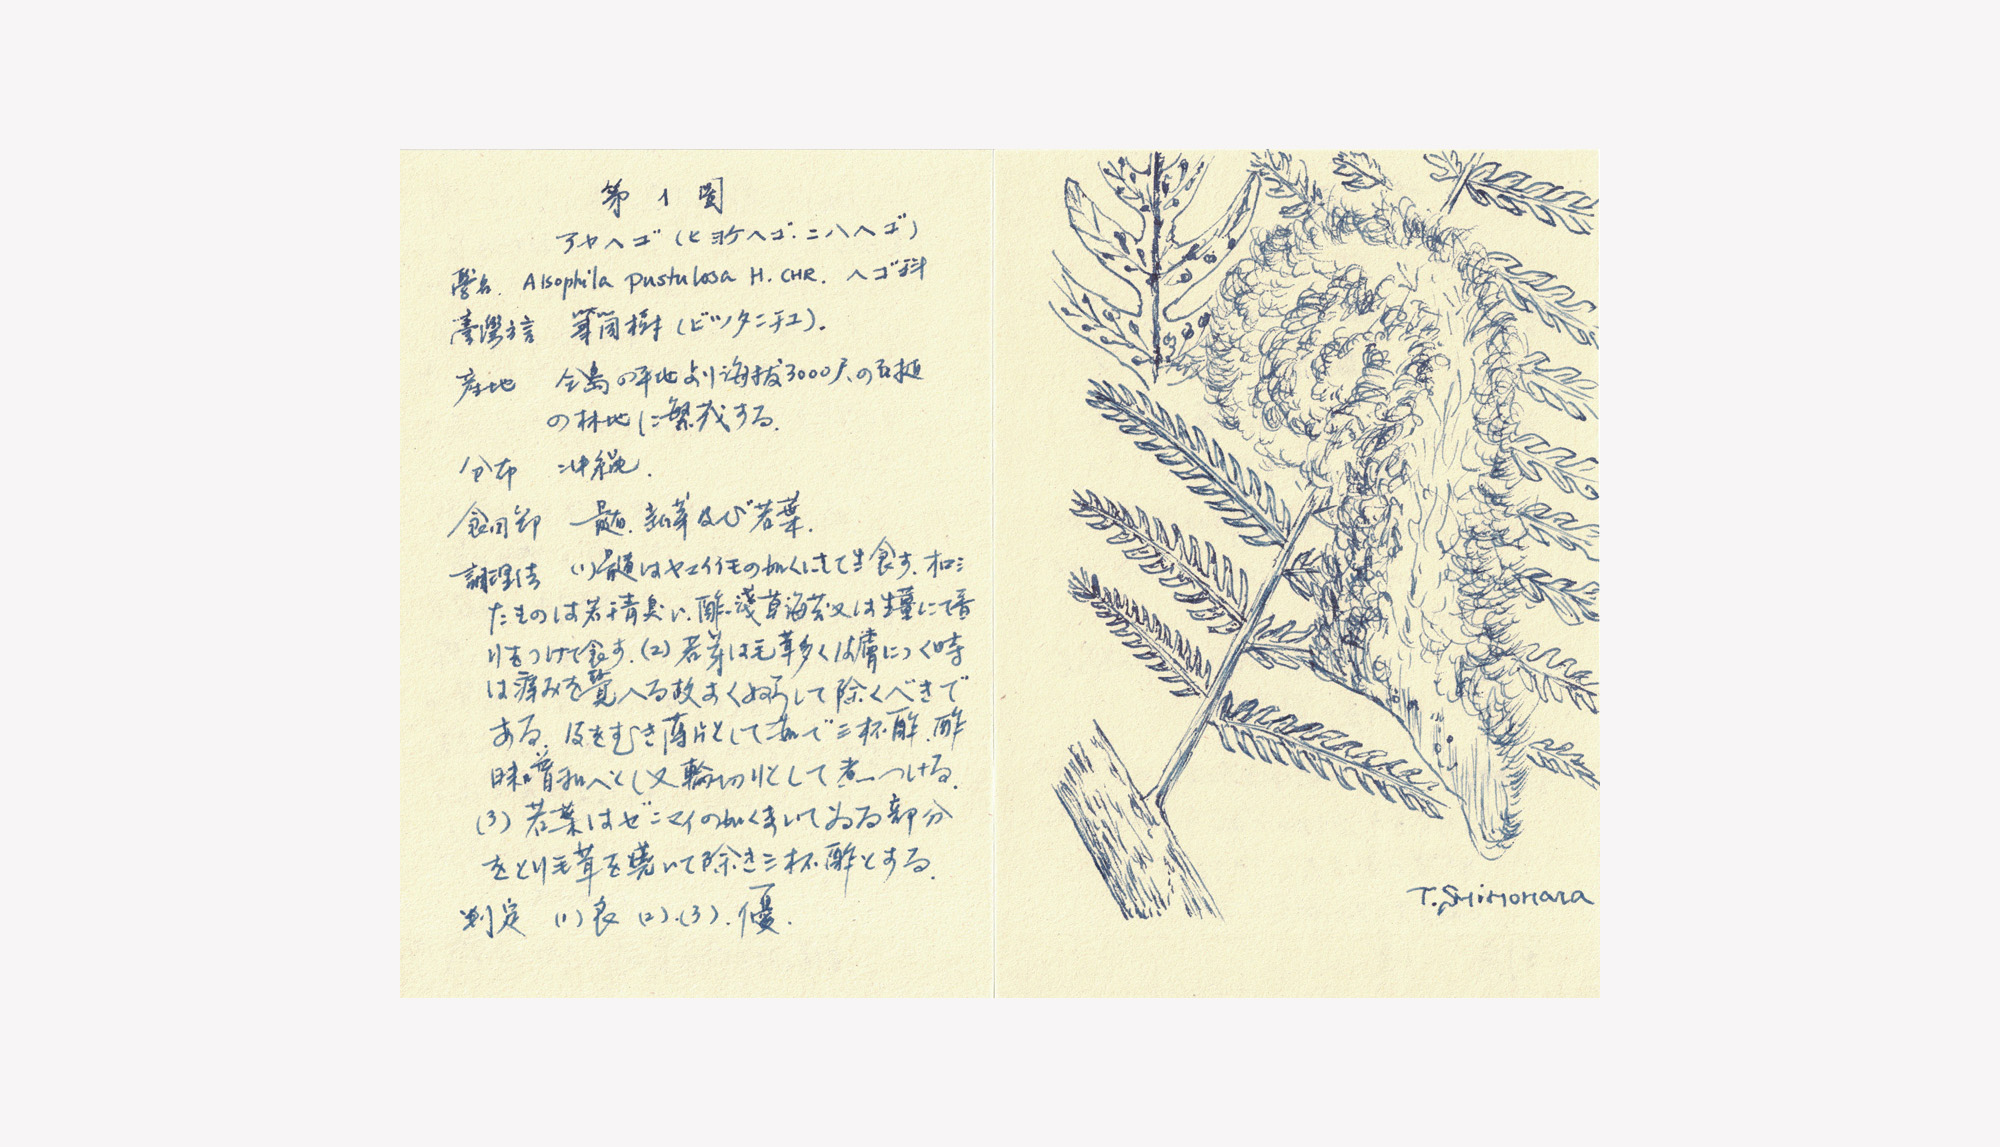 第1圖
アヤヘゴ(ヒヨケヘゴ.ニハヘゴ)
學名. Alsophila pustulosa H. CHR. ヘゴ科
臺灣方言 筆筒樹(ビツタニチユ).
産地 全島の平地より海抜3000尺の
の林地に繁茂する.
分布 沖縄.
食用部 髄.新芽及び若葉.
調理法 (1)髄はヤエイイモの如くにして生食す.
たものは若干青臭い.酢.淺草海苔又は生薑にて香
りをつけて食す.(2)若芽は毛茸多く皮膚につく時
は痒みを覺へる故よくぬらして除くべきで
ある.皮をむき薄片として茹で三杯酢.酢
味噌和へとし又輪切りとして煮つける.
(3)若葉はゼンマイの如くまいてゐる部分
をとり毛茸を焼いて除き三杯酢とする.
判定 (1)良 (2).(3).優.
T. SHIMOHARA